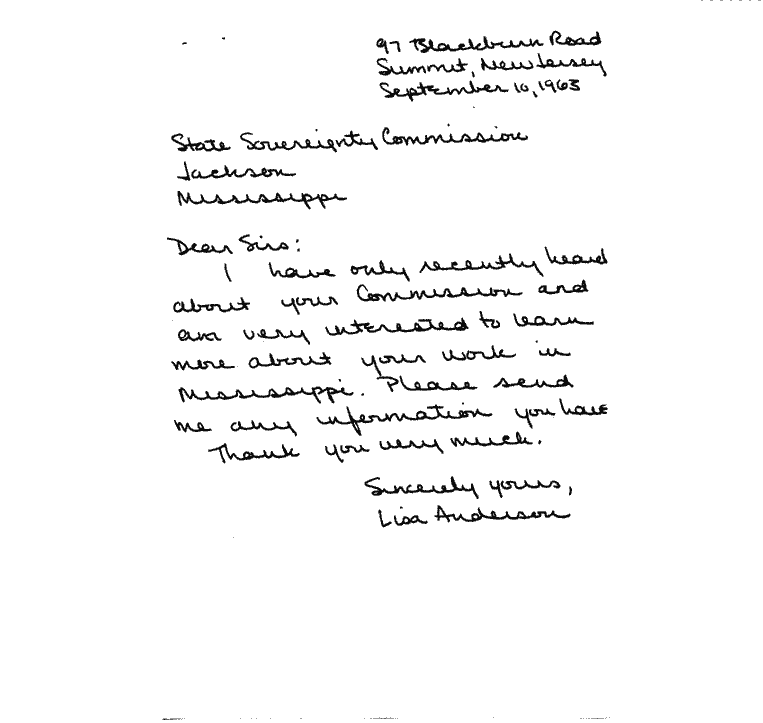 97 Blackburn Road
Summit, New Jersey
September 10, 1963
State Sovereignty Commission
Jackson
Mississippi
Dear Sirs:
I have only recently heard
about your Commission and
am very interested to learn
more about your work in
Mississippi. Please send
me any information you have
Thank you very much.
Sincerely yours,
Lisa Anderson